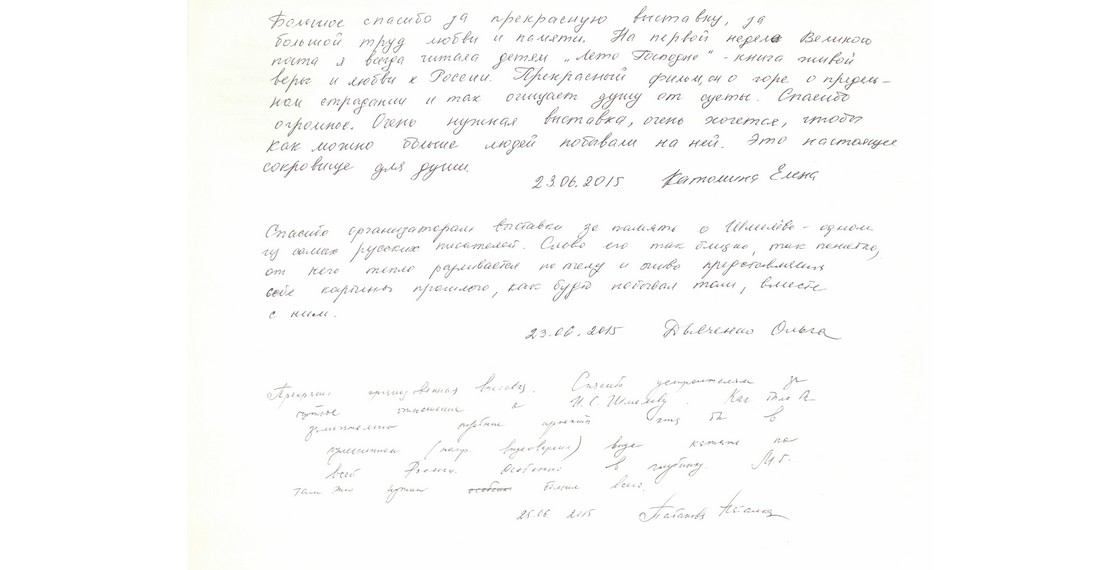 Большое спасибо за прекрасную выставку, за
большой труд любви и памяти. На первой неделе Великого
поста я всегда читала детям „Лето Господне" - книга живой
веры и любви к России. Прекрасный фильм, он о горе о предель-
ном страдании и так очищает душу от суеты. Спасибо
огромное. Очень нужная выставка, очень хочется, чтобы
как можно больше людей побывали на ней. Это настоящее
сокровище для души.
23.06.2015 Елена
Спасибо организаторам выставки за память о Шмелёве - одном
из самых русских писателей. Слово его так близко, так понятно,
от него тепло разливается по телу и живо представляешь
себе картины прошлого, как будто побывал там, вместе
с ним.
23.06.2015 Дьяченко Ольга
выставка. Спасибо устроителям за
отношение к И.С. Шмелёву. Как было бы
замечательно бы в
(напр. ) виде катать по
всей России. Особенно в глубинку.
там это нужнее больше всего.
25.06 2015